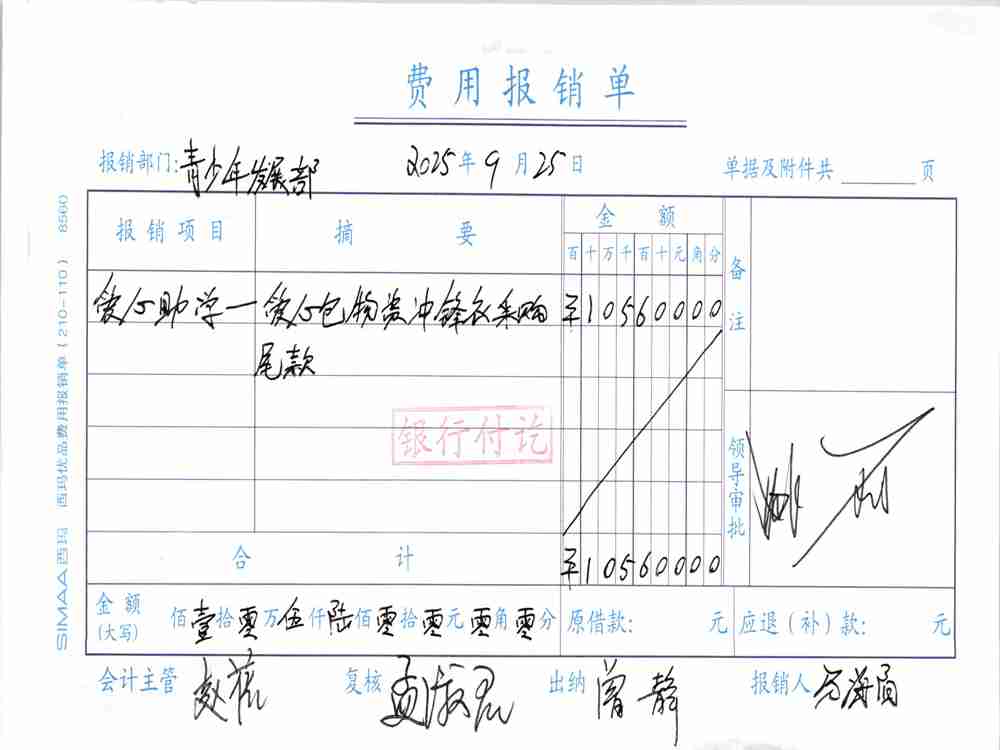 费用报销单
报销部门:青少年发展部 2025年9月25日 单据及附件共 页
报销项目 摘要 金额 备注
百十万千百十元角分
爱心助学一爱心包物资冲锋衣采购 ¥10560000
尾款
银行付讫
领导审批
合计 ¥10560000
金额(大写) 佰壹拾零万伍仟陆佰零拾零元零角零分 原借款: 元 应退(补)款: 元
会计主管 复核 出纳 曾静 报销人
SIMAA西玛 西玛优品费用报销单(210-110) 8560